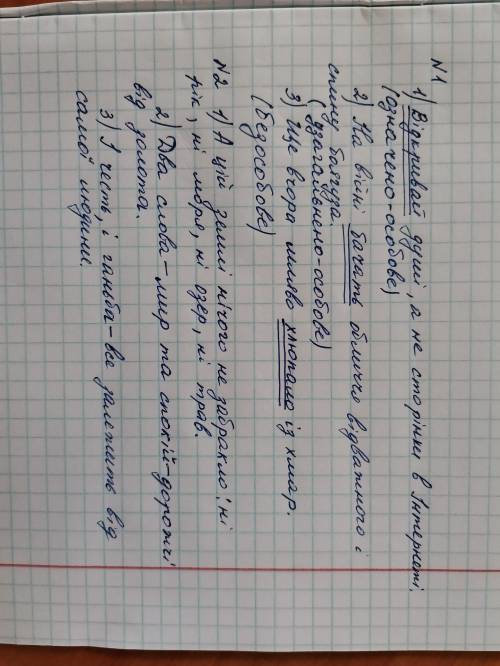 N1
1) Відкривай душі, а не сторінки в Інтернеті.
(одначено-особове)
2) На війні бачать обличчя відважного і
спину боягуза.
(узагальнено-особове)
3) Ще вчора мляво хлюпало із хмар.
(безособове)
N2 1) А цій землі нічого не забракло: ні
рік, ні моря, ні озер, ні трав.
2) Два слова – мир та спокій – дорожчі
від золота.
3) І честь, і ганьба – все залежить від
самої людини.